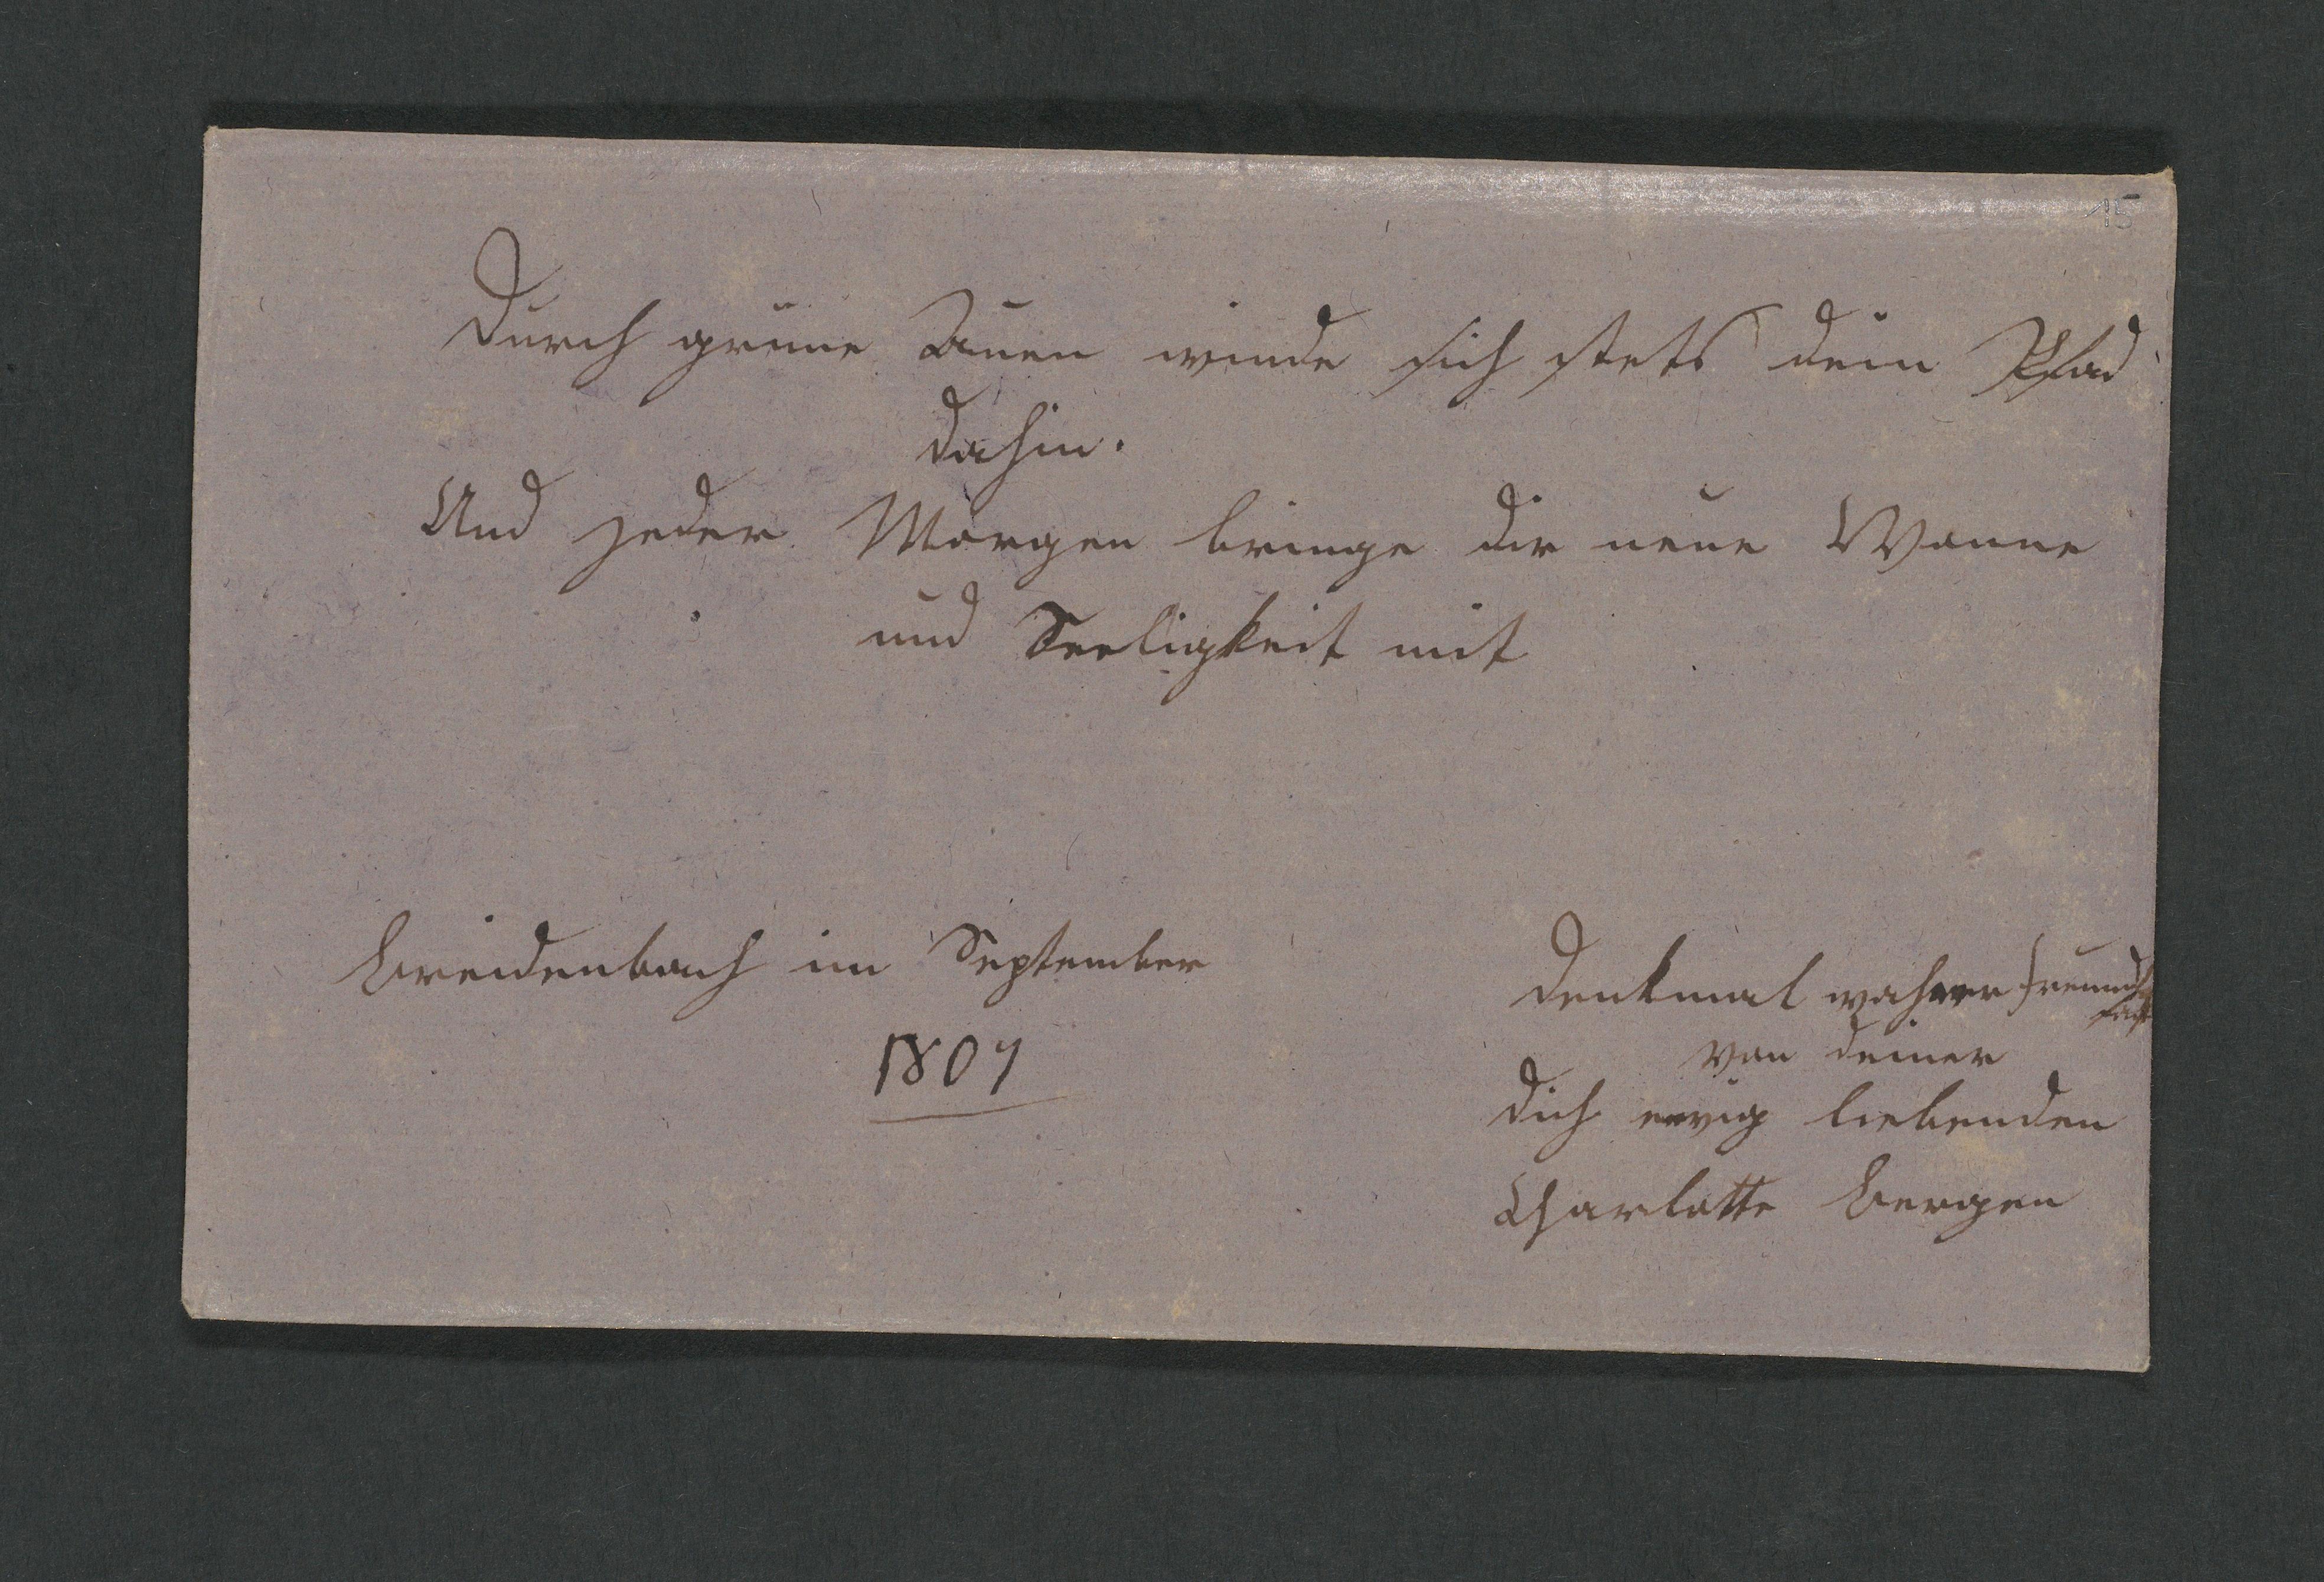 15
Durch grüne Auen winde sich stets dein Pfad
dahin.
Und jeder Morgen bringe dir neue Wonne
und Seeligkeit mit
Breidenbach im September
1807
Denkmal wahrer Freund-
schaft
von deiner
dich ewig liebenden
Charlotte Bergen